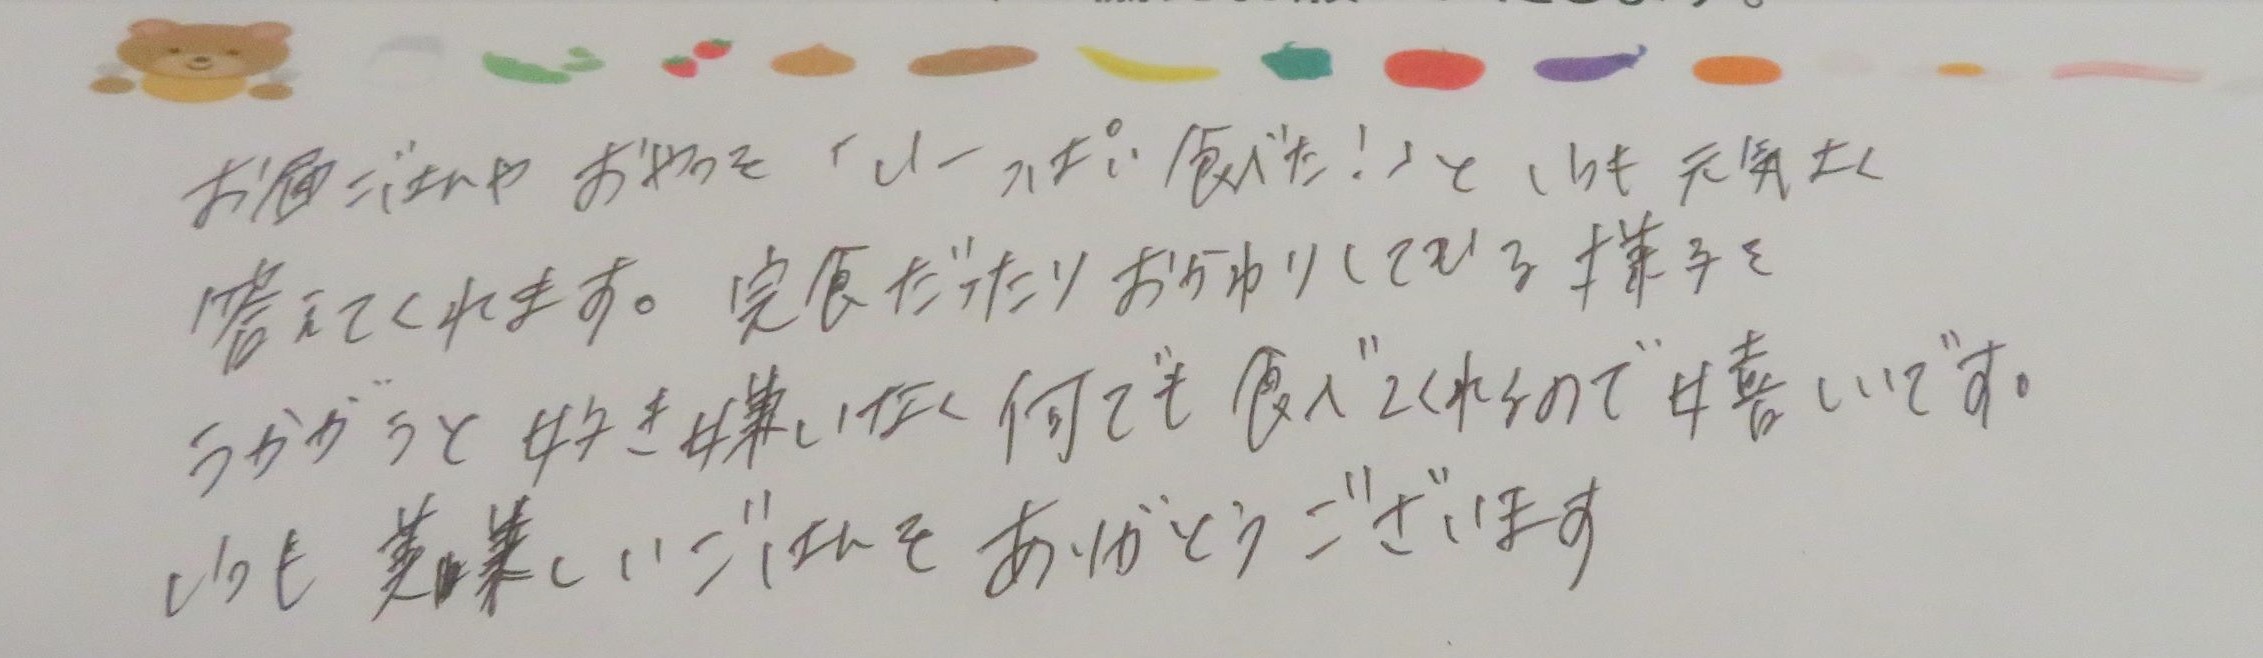 お昼ごはんや おやつを 「いーっぱい 食べた!」と いつも 元気よく
答えてくれます。完食だったり おかわりしている 様子を
うかがうと 好き嫌いなく 何でも 食べてくれるので 嬉しいです。
いつも 美味しいごはんを ありがとうございます